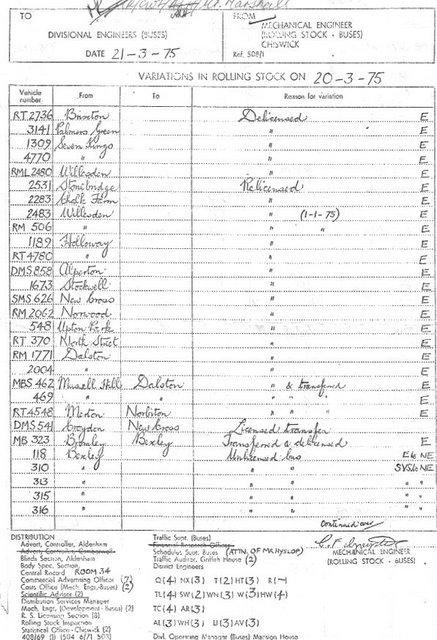 TO
FROM
DIVISIONAL ENGINEERS (BUSES)
MECHANICAL ENGINEER
(ROLLING STOCK - BUSES)
CHISWICK
DATE 21-3-75
Ref. 508/1
VARIATIONS IN ROLLING STOCK ON 20-3-75
Vehicle number From To Reason for variation
RT 2736 Brixton Delicensed E
3141 Palmers Green " E
1309 Seven Kings " E
4770 " " E
RML 2480 Willesden " E
2531 Stonebridge Relicensed E
2283 Chalk Farm " E
2483 Willesden " (1-1-75) E
RM 506 " " " E
1189 Holloway " E
RT 4780 " " E
DMS 858 Alperton " E
1673 Stockwell " E
SMS 626 New Cross " E
RM 2062 Norwood " E
548 Upton Park " E
RT 370 North Street " E
RM 1771 Dalston " E
2004 " " E
MBS 462 Muswell Hill Dalston " & transferred E
469 " " " " " E
RT 4548 Merton Norbiton " " " E
DMS 541 Croydon New Cross Licensed transfer
MB 323 Bromley Bexley Transferred & delicensed E
118 Bexley Unlicensed bus E to NE
310 " " " SVS to NE
313 " " " " "
315 " " " " "
316 " " " " "
Continued over
DISTRIBUTION
Advert. Controller, Aldenham
Advert. Controller, Camberwell
Blinds Section, Aldenham
Body Spec. Section,
Central Record ROOM 34
Commercial Advertising Officer (7)
Coins Office (Mech. Engs. Buses) (2)
Scientific Adviser (2)
Distribution Services Manager
Mech. Engr. (Development - Buses) (2)
R. S. Licensing Section (8)
Rolling Stock Inspection
Statistical Officer - Chiswick (2)
Traffic Supt. (Buses)
Financial Research Officer
Schedules Supt. Buses (ATTN. OF MR. HYSLOP)
Traffic Auditor, Griffith House (2)
District Engineers
Q(4) NX(3) T(2) HT(3) R(-)
TL(4) SW(2) WN(3) W(3) HW(4)
TC(4) AR(3)
AL(3) WH(3) U(3) AV(3)
Divl. Operating Manager (Buses) Mansion House
MECHANICAL ENGINEER
(ROLLING STOCK - BUSES)